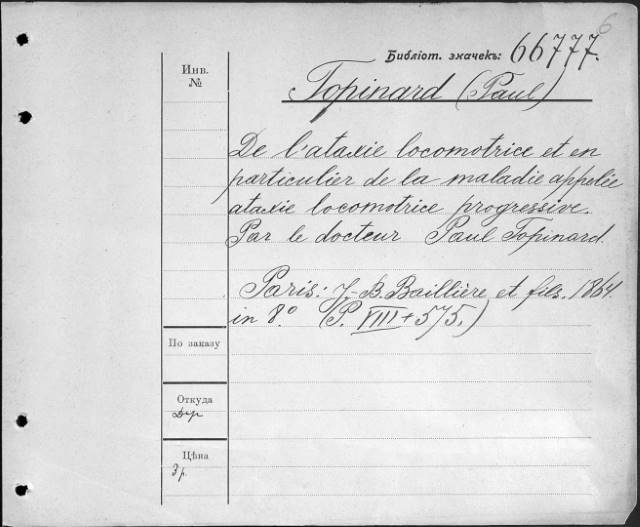 6
Библіот. значекъ: 66777.
Инв.
№
Topinard (Paul)
De l'ataxie locomotrice et en
particulier de la maladie appelée
ataxie locomotrice progressive.
Par le docteur Paul Topinard.
Paris: J.-B. Baillière et fils. 1864.
in 8º. (P. VIII + 575.)
По заказу
Откуда
Цѣна
3 р.